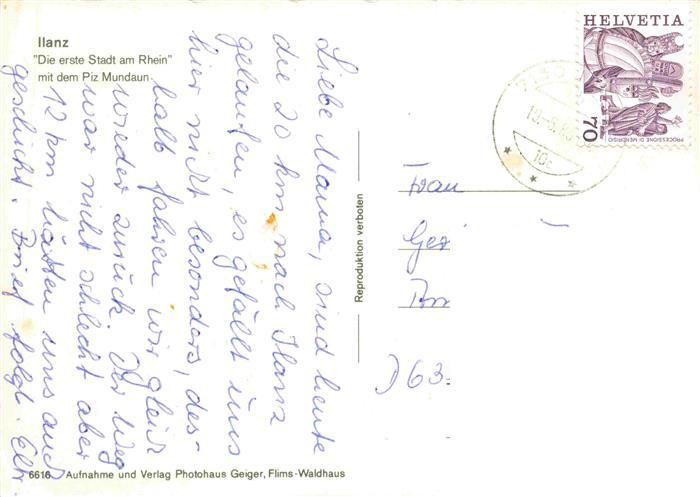 Ilanz
"Die erste Stadt am Rhein"
mit dem Piz Mundaun
Liebe Mama, sind heute
die 20 km nach Ilanz
gelaufen, es gefällt uns
hier nicht besonders, des-
halb fahren wir gleich
wieder zurück. Der Weg
war nicht schlecht aber
12 km hätten uns auch
gereicht. Brief folgt.
6616 Aufnahme und Verlag Photohaus Geiger, Flims-Waldhaus
Reproduktion verboten
HELVETIA
PROCESSIONE DI MENDRISIO
70
Frau
D 63